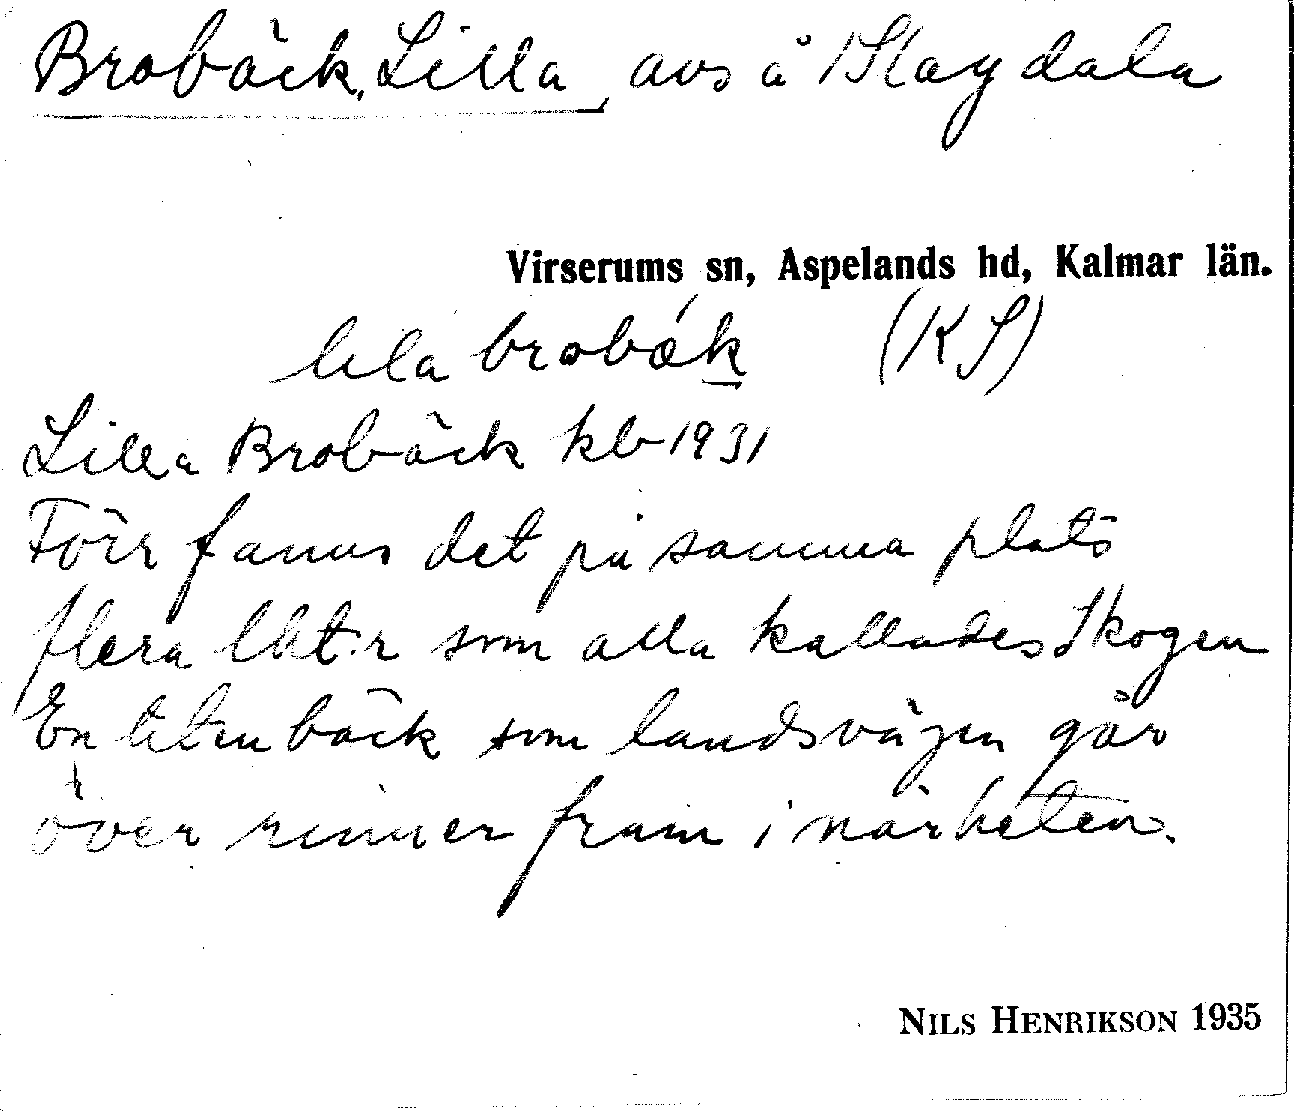 Brobäck, Lilla, avs å 1 Slagdala
Virserums sn, Aspelands hd, Kalmar län.
lila brobǽk (KS)
Lilla Brobäck kb 1931
Förr fanns det på samma plats
flera lht:r som alla kallades Skogen
En liten bäck som landsvägen går
över rinner fram i närheten.
NILS HENRIKSON 1935